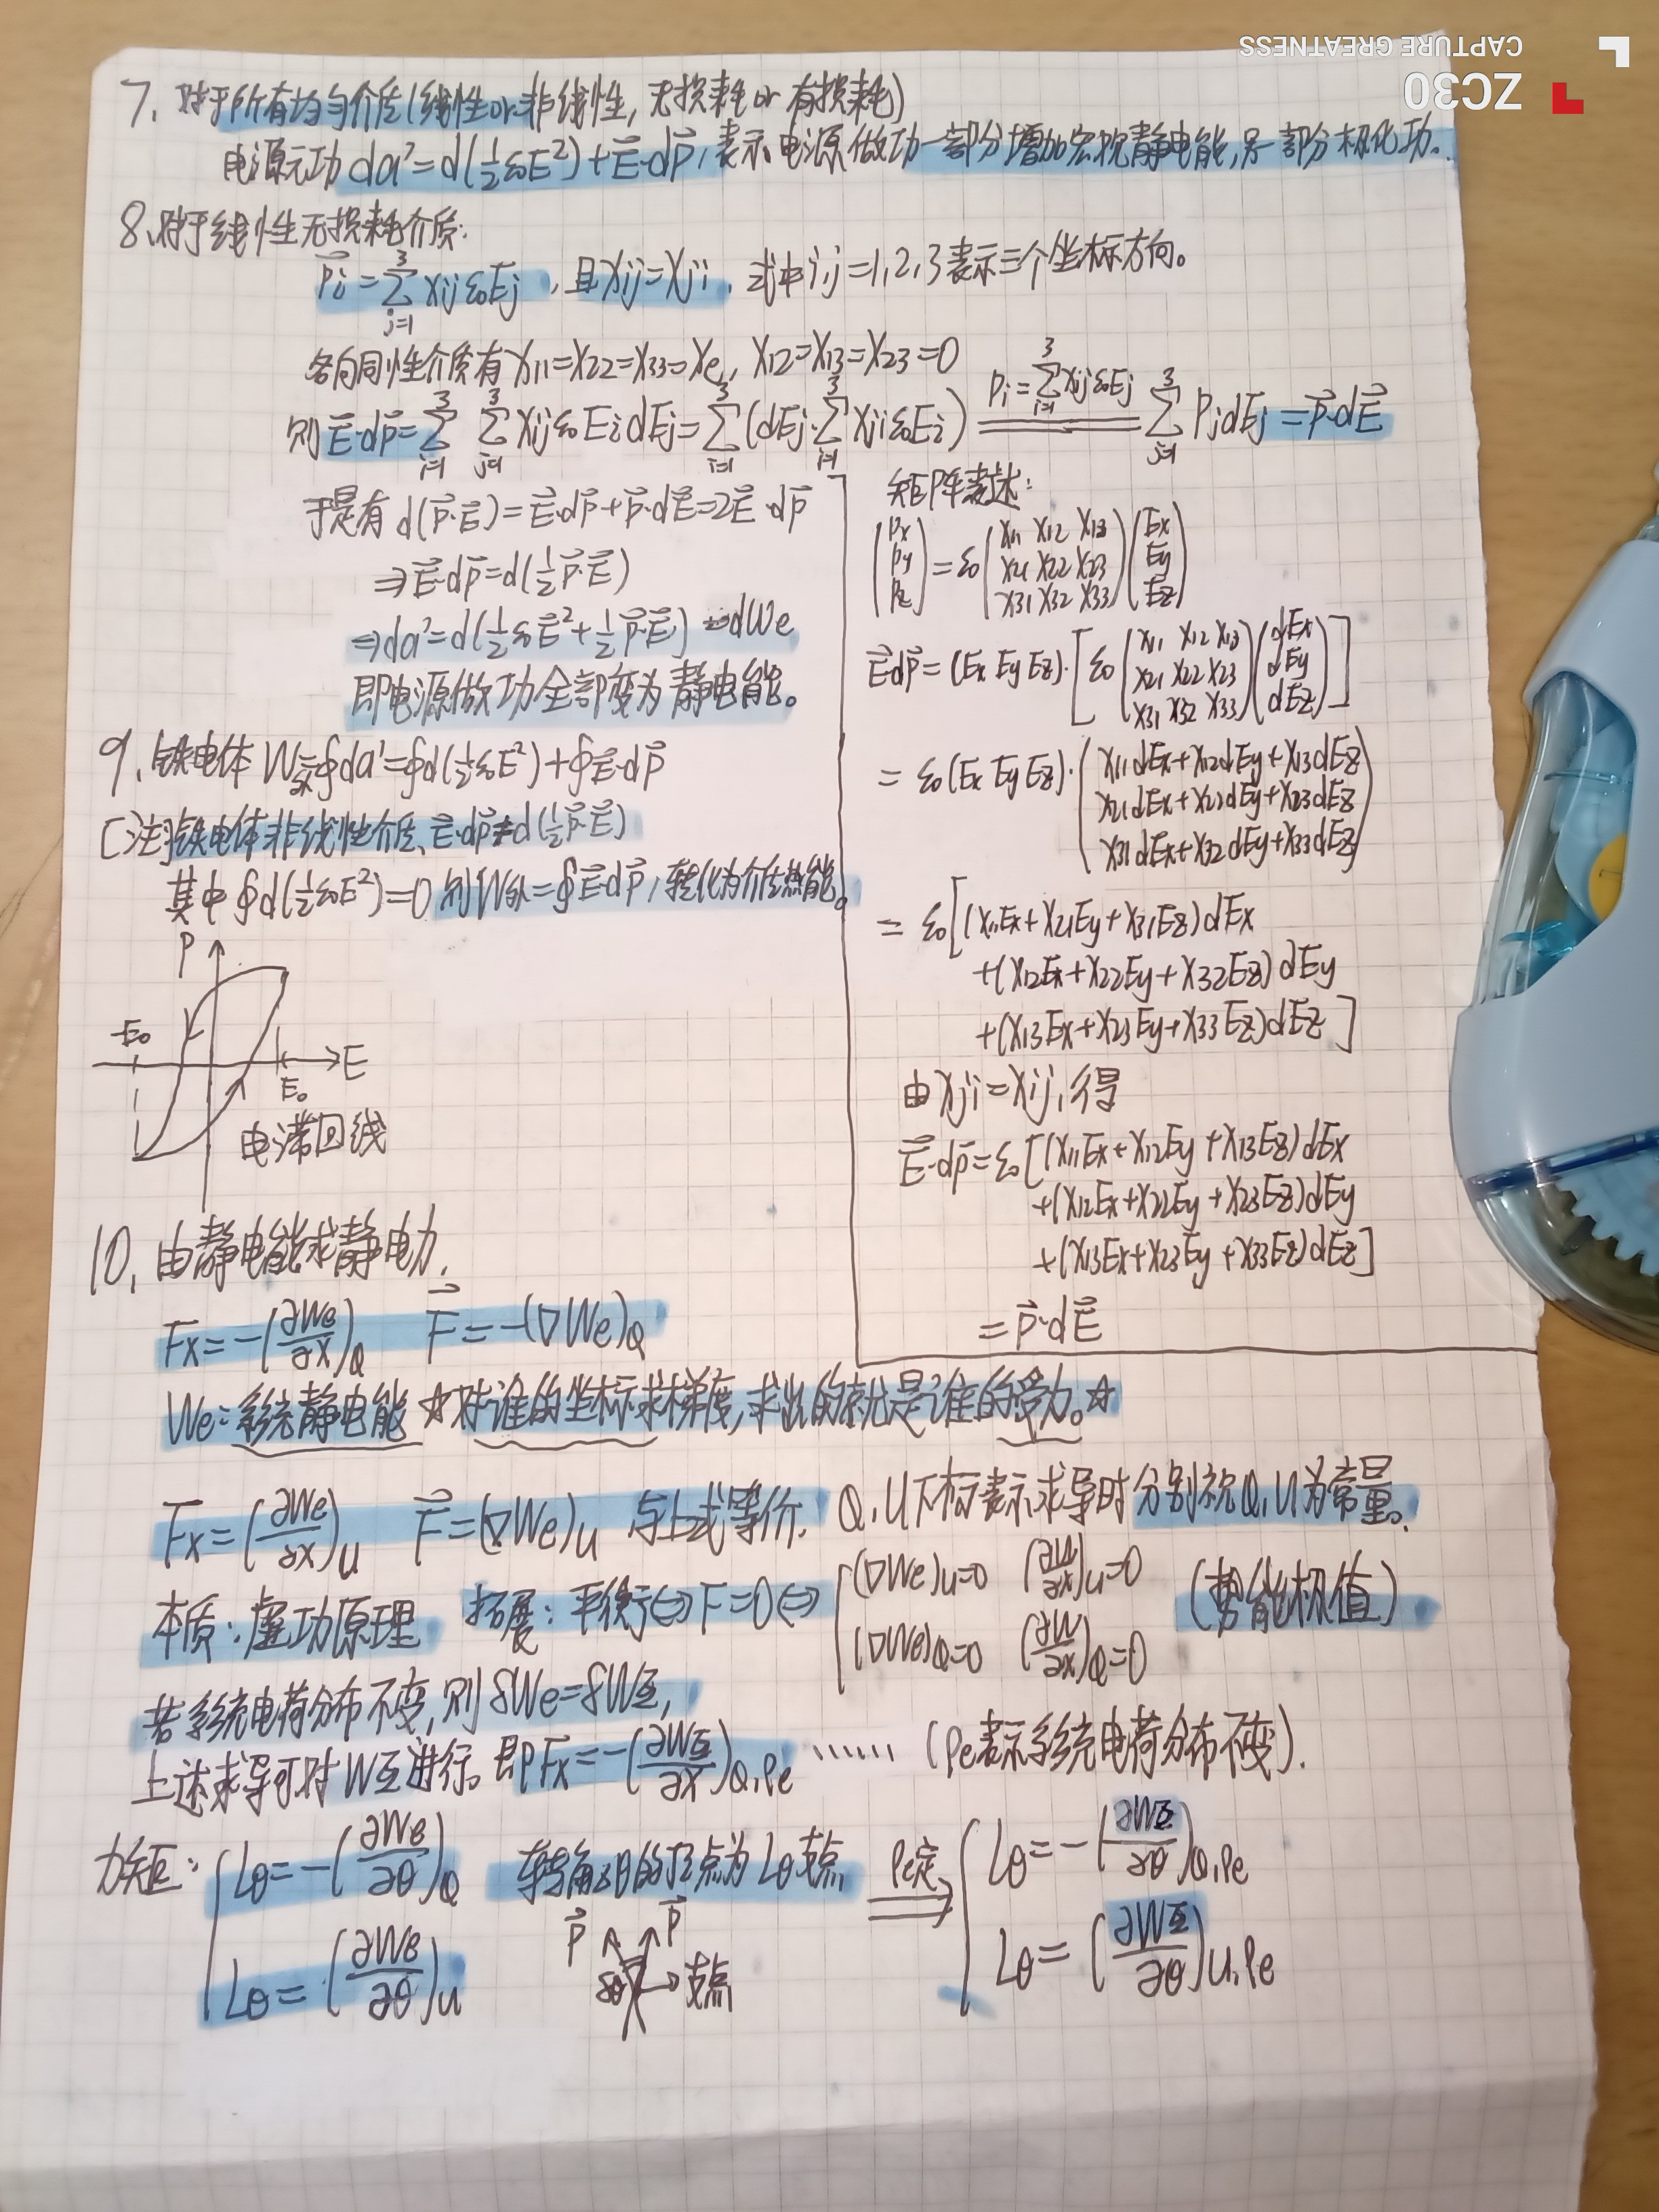 7. 对于所有均匀介质(线性or非线性,无损耗or有损耗)
电源元功da'=d(½ε₀E²)+E⃗·dp⃗,表示电源做功一部分增加宏观静电能,另一部分极化功。
8、对于线性无损耗介质:
p⃗i=∑(j=1→3)χijε₀Ej,且χij=χji,式中i,j=1,2,3表示三个坐标方向。
各向同性介质有χ11=χ22=χ33=χe,χ12=χ13=χ23=0
则E⃗·dp⃗=∑(i=1→3)∑(j=1→3)χijε₀EidEj=∑(i=1→3)(dEj·∑(i=1→3)χjiε₀Ei) =(Pi=∑(i=1→3)χijε₀Ej)= ∑(j=1→3)PjdEj=p⃗·dE⃗
于是有d(p⃗·E⃗)=E⃗·dp⃗+p⃗·dE⃗=2E⃗·dp⃗
⇒E⃗·dp⃗=d(½p⃗·E⃗)
⇒da'=d(½ε₀E⃗²+½p⃗·E⃗)=dWe
即电源做功全部变为静电能。
矩阵表述:
(Px Py Pz)=ε₀(χ11 χ12 χ13 χ21 χ22 χ23 χ31 χ32 χ33)(Ex Ey Ez)
E⃗·dp⃗=(Ex Ey Ez)·[ε₀(χ11 χ12 χ13 χ21 χ22 χ23 χ31 χ32 χ33)(dEx dEy dEz)]
=ε₀(Ex Ey Ez)·(χ11dEx+χ12dEy+χ13dEz
χ21dEx+χ22dEy+χ23dEz
χ31dEx+χ32dEy+χ33dEz)
=ε₀[(χ11Ex+χ21Ey+χ31Ez)dEx
+(χ12Ex+χ22Ey+χ32Ez)dEy
+(χ13Ex+χ23Ey+χ33Ez)dEz]
由χji=χij,得
E⃗·dp⃗=ε₀[(χ11Ex+χ12Ey+χ13Ez)dEx
+(χ12Ex+χ22Ey+χ23Ez)dEy
+(χ13Ex+χ23Ey+χ33Ez)dEz]
=p⃗·dE⃗
9、铁电体 W=∮da'=∮d(½ε₀E²)+∮E⃗·dp⃗
[注]铁电体非线性介质,E⃗·dp⃗≠d(½p⃗·E⃗)
其中∮d(½ε₀E²)=0 则W=∮E⃗·dp⃗,转化为介质热能。
P
-E₀
E
E₀
电滞回线
10、由静电能求静电力.
Fx=-(∂We/∂x)Q F⃗=-(∇We)Q
We:系统静电能 ☆对谁的坐标求梯度,求出的就是谁的受力。☆
Fx=(∂We/∂x)U F⃗=(∇We)U 与上式等价. Q,U下标表示求导时分别视Q,U为常量。
本质:虚功原理 拓展:平衡⇔F=0⇔{(∇We)U=0 (∂W/∂x)U=0
(∇We)Q=0 (∂W/∂x)Q=0 (势能极值)
若系统电荷分布不变,则δWe=δW互,
上述求导可对W互进行。即Fx=-(∂W互/∂x)Q,ρe ······ (ρe表示系统电荷分布不变).
力矩:{Lθ=-(∂We/∂θ)Q 转角δθ的顶点为Lθ支点 ρe定⇒ {Lθ=-(∂W互/∂θ)Q,ρe
Lθ=(∂We/∂θ)U Lθ=(∂W互/∂θ)U,ρe
p⃗ p⃗
δθ 支点
ZC30
CAPTURE GREATNESS